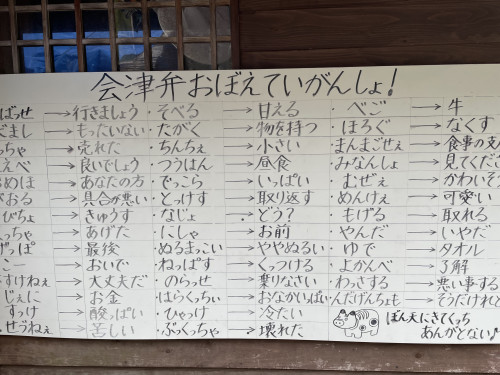 会津弁おぼえていがんしょ!
ばっせ → 行きましょう ・そべる → 甘える ・べご → 牛
ぐまし → もったいない ・たがく → 物を持つ ・ほろぐ → なくす
っちゃ → 売れた ・ちんちぇ → 小さい ・まんまごせぇ → 食事の支
えべ → 良いでしょう ・つうはん → 昼食 ・みなんしょ → 見てくださ
めほ → あなたの方 ・でっこら → いっぱい ・むぜぇ → かわいそう
おる → 具合が悪い ・とっけす → 取り返す ・めんけぇ → 可愛い
びちょ → きゅうす ・なじょ → どう? ・もげる → 取れる
っちゃ → あげた ・にしゃ → お前 ・やんだ → いやだ
げっぱ → 最後 ・ぬるまっこい → ややぬるい ・ゆで → タオル
こ → おいで ・ねっぱす → くっつける ・よかんべ → 了解
すけねぇ → 大丈夫だ ・のらっせ → 乗りなさい ・わっさする → 悪い事する
じぇに → お金 ・はらくっちぃ → おなかいっぱい ・んだげんちょも → そうだけれ
すっけ → 酸っぱい ・ひゃっけ → 冷たい
せづねぇ → 苦しい ・ぶっくっちゃ → 壊れた
ぼん天にきてくっち
あんがとない♪